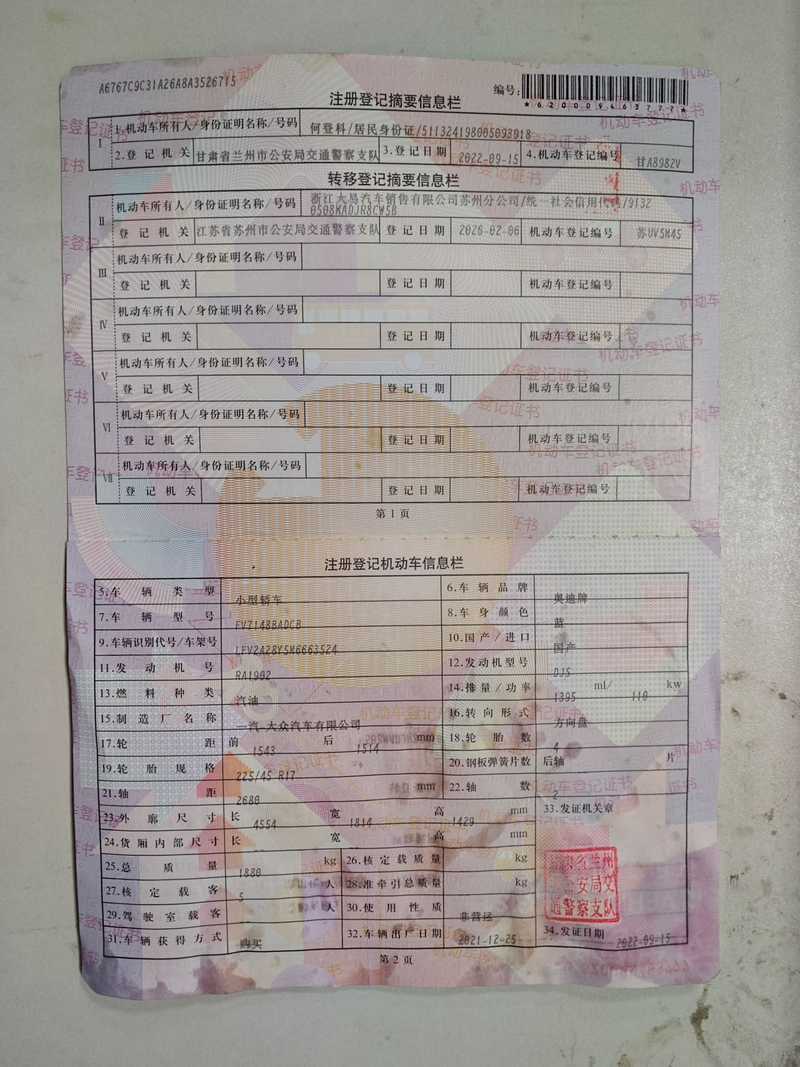 A6767C9C31A26A8A3526715
编号:
*620009463777*
注册登记摘要信息栏
Ⅰ 1.机动车所有人/身份证明名称/号码 何登科/居民身份证/511324198005098918
2.登记机关 甘肃省兰州市公安局交通警察支队 3.登记日期 2022-09-15 4.机动车登记编号 甘A8982V
转移登记摘要信息栏
Ⅱ 机动车所有人/身份证明名称/号码 浙江大易汽车销售有限公司苏州分公司/统一社会信用代码/9132
0508KADJR8CW5B
登记机关 江苏省苏州市公安局交通警察支队 登记日期 2026-02-06 机动车登记编号 苏UV5M45
Ⅲ 机动车所有人/身份证明名称/号码
登记机关 登记日期 机动车登记编号
Ⅳ 机动车所有人/身份证明名称/号码
登记机关 登记日期 机动车登记编号
Ⅴ 机动车所有人/身份证明名称/号码
登记机关 登记日期 机动车登记编号
Ⅵ 机动车所有人/身份证明名称/号码
登记机关 登记日期 机动车登记编号
Ⅶ 机动车所有人/身份证明名称/号码
登记机关 登记日期 机动车登记编号
第1页
注册登记机动车信息栏
5.车辆类型 小型轿车 6.车辆品牌 奥迪牌
7.车辆型号 FV7148BADCB 8.车身颜色 蓝
9.车辆识别代号/车架号 LFV2A28Y5M6663524 10.国产/进口 国产
11.发动机号 RA1902 12.发动机型号 DJS
13.燃料种类 汽油 14.排量/功率 1395 ml/ 110 kw
15.制造厂名称 一汽-大众汽车有限公司 16.转向形式 方向盘
17.轮距 前 1543 后 1514 mm 18.轮胎数 4
19.轮胎规格 225/45 R17 20.钢板弹簧片数 后轴 片
21.轴距 2680 mm 22.轴数 2
23.外廓尺寸 长 4554 宽 1814 高 1429 mm 33.发证机关章
24.货厢内部尺寸 长 宽 高 mm
25.总质量 1880 kg 26.核定载质量 kg
27.核定载客 5 人 28.准牵引总质量 kg
29.驾驶室载客 人 30.使用性质 非营运
31.车辆获得方式 购买 32.车辆出厂日期 2021-12-25 34.发证日期 2022-09-15
第2页